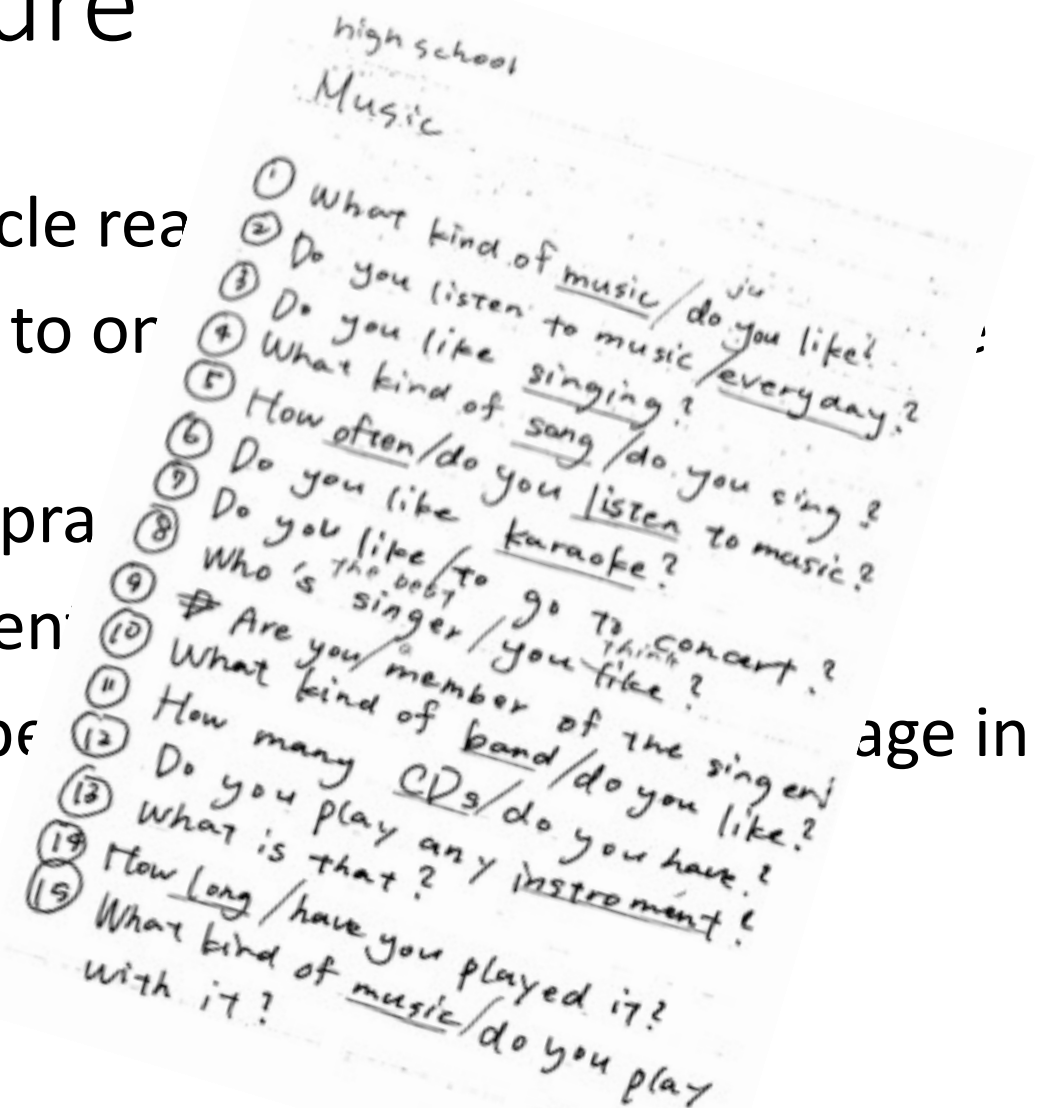 ure
high school
Music
cle rea
to or
pra
en
age in
① What kind of music / do you like?
ju
② Do you listen to music / everyday?
③ Do you like singing?
④ What kind of song / do you sing?
⑤ How often / do you listen to music?
⑥ Do you like karaoke?
⑦ Do you like / to go to concert?
⑧ Who's the best singer / you think like?
⑨ Are you / a member of the singer
⑩ What kind of band / do you like?
⑪ How many CDs / do you have?
⑫ Do you play any instroment?
⑬ What is that?
⑭ How long / have you played it?
⑮ What kind of music / do you play
with it?